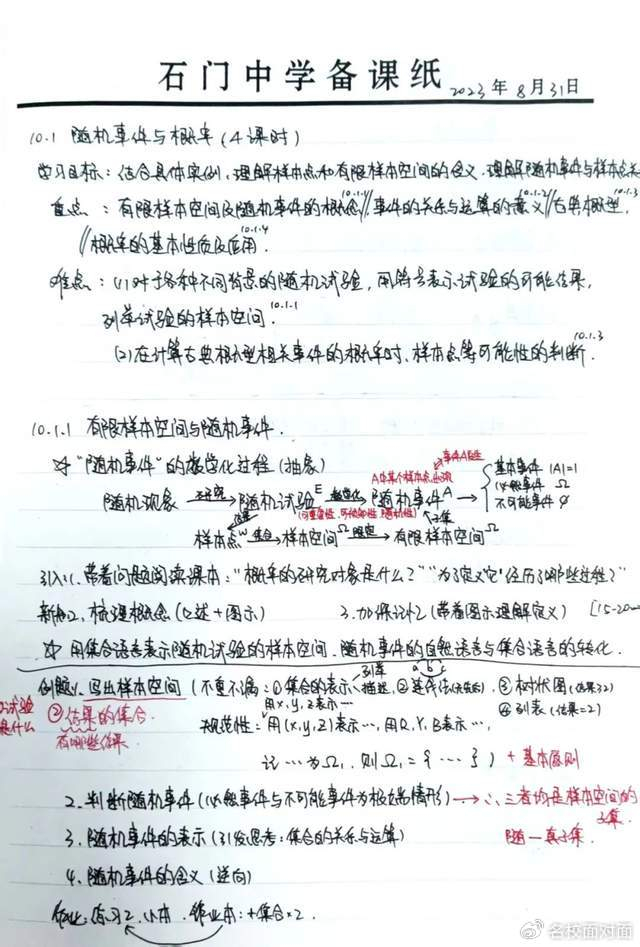 石门中学备课纸 2023年8月31日
10.1 随机事件与概率(4课时)
学习目标:结合具体实例,理解样本点和有限样本空间的含义.理解随机事件与样本点关
重点:有限样本空间及随机事件的概念 10.1.1 // 事件的关系与运算的意义 10.1.2 // 古典概型 10.1.3
// 概率的基本性质及应用 10.1.4
难点:(1)对于各种不同背景的随机试验,用符号表示试验的可能结果,
列举试验的样本空间. 10.1.1
(2)在计算古典概型相关事件的概率时,样本点等可能性的判断. 10.1.3
10.1.1 有限样本空间与随机事件.
☆"随机事件"的数学化过程(抽象)
事件A发生
A中某个样本点出现
随机现象 → 随机试验E → 随机事件A → 基本事件 |A|=1
必然事件 Ω
不可能事件 ∅
(可重复性.可预知性.随机性) 子集
样本点w 集合→ 样本空间Ω → 有限样本空间Ω
引入1.带着问题阅读课本:"概率的研究对象是什么?""为了定义它经历了哪些过程?"
新知2.梳理概念(口述+图示) 3.加深记忆(带着图示理解定义) [15-20
☆ 用集合语言表示随机试验的样本空间.随机事件的自然语言与集合语言的转化.
例题1.写出样本空间(不重不漏:①集合的表示 列举 描述,② ③树状图(结果≥2)
试验是什么 ②结果的集合. 用x,y,z表示… ④列表(结果=2)
有哪些结果 规范性:用(x,y,z)表示…,用R,Y,B表示…
记…为Ω₁,则Ω₁={…}) +基本原则
2.判断随机事件(必然事件与不可能事件为极端情形)→∴三者均是样本空间的子集.
3.随机事件的表示(引发思考:集合的关系与运算) 随—真子集.
4.随机事件的含义(逆向)
作业:练习2.小本.作业本:+集合×2.
名校面对面